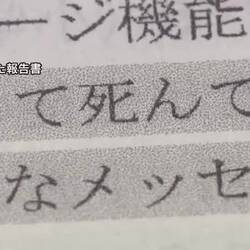 ージ機能
た報告書
て死んで
なメッセ